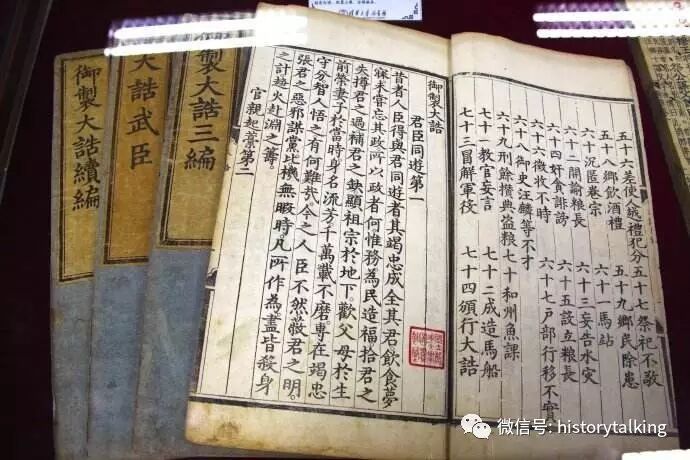 五十六差使人越禮犯分 五十七祭祀不敬
五十八鄉飲酒禮 五十九鄉民除患
六十沉匿卷宗 六十一馬站
六十二開諭糧長 六十三妄告水災
六十四奸貪誹謗 六十五設立糧長
六十六徵收不時 六十七戶部行移不實
六十八御史汪麟等不才
六十九刑餘攢典盜糧 七十和州魚課
七十一教官妄言 七十二成造馬船
七十三冒解軍役 七十四頒行大誥
御製大誥
君臣同遊第一
昔者人臣得與君同遊者其竭忠成全其君飲食夢
寐未嘗忘其政所以政者何惟務為民造福拾君之
失撙君之過補君之缺顯祖宗於地下歡父母於生
前榮妻子於當時身名流芳千萬載不磨專在竭忠
守分智人悟之有何難哉。今之人臣不然蔽君之明。
張君之惡邪謀黨比機無暇時。凡所作為盡皆殺身
之計趨火赴淵之籌。
官親起藁第二
製大誥三編
大誥武臣
御製大誥續編
微信号: historytalking